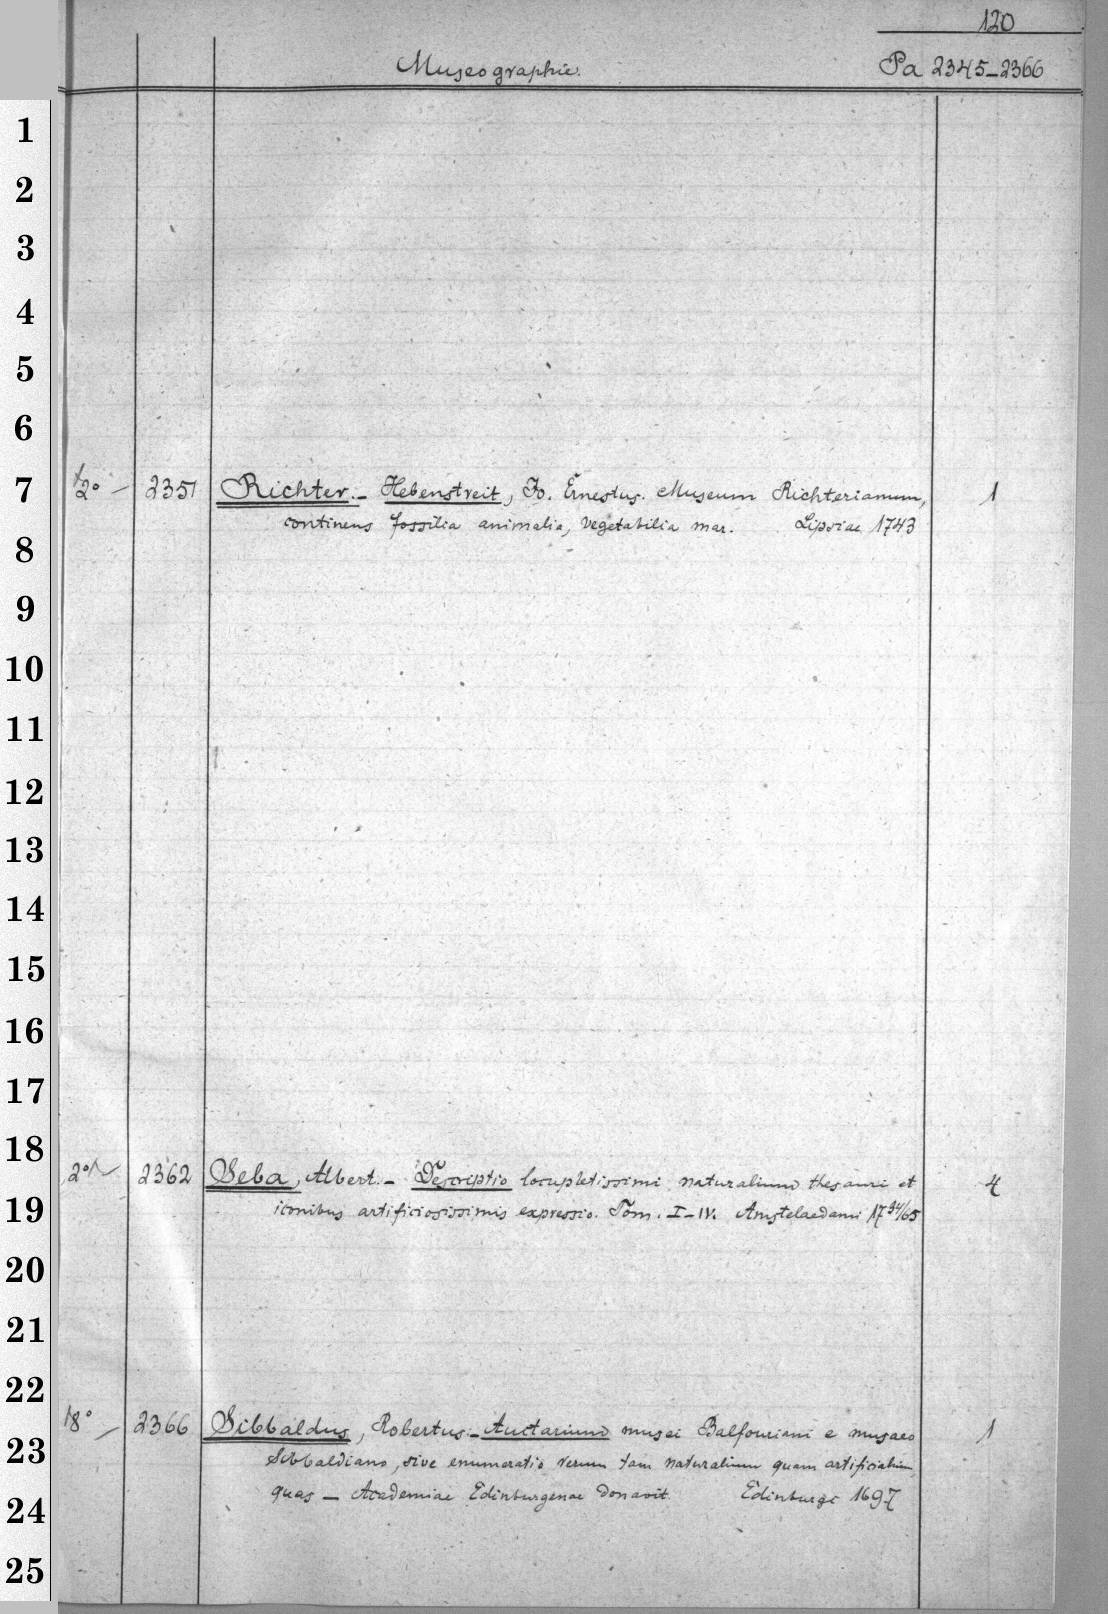 120
Museographie. Pa 2345-2366
1
2
3
4
5
6
7 2° - 2351 Richter. - Hebenstreit, Jo. Ernestus. Museum Richterianum, 1
continens fossilia animalia, vegetabilia mar. Lipsiae 1743
8
9
10
11
12
13
14
15
16
17
18
2° 2362 Seba, Albert. - Descriptio locupletissimi naturalium thesauri et 4
19 iconibus artificiosissimis expressio. Tom. I-IV. Amstelaedami 1734/65
20
21
22
8° - 2366 Sibbaldus, Robertus. - Auctarium musei Balfouriani e musaeo 1
23 Sibbaldiano, sive enumeratio rerum tam naturalium quam artificialium,
quas - Academiae Edinburgenae donavit. Edinburgi 1697
24
25